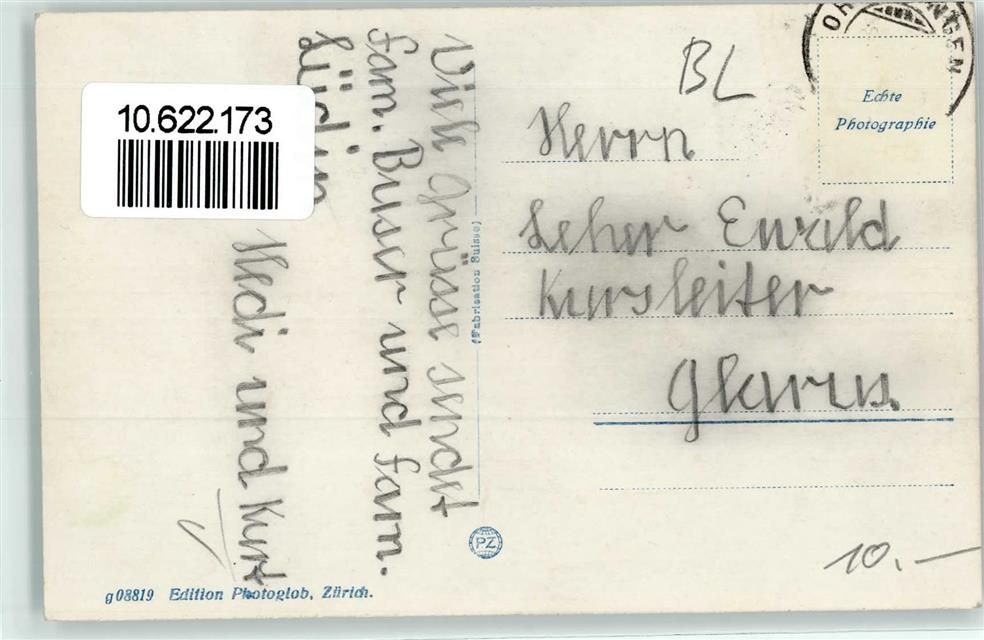 10.622.173
Viele Grüsse sendet
fam. Buser und fam.
Hedi und Kurt
(Fabrication Suisse)
BL
Echte
Photographie
Herrn
Leher Ewald
Kursleiter
Glarus.
PZ
10.–
g08819 Edition Photoglob, Zürich.